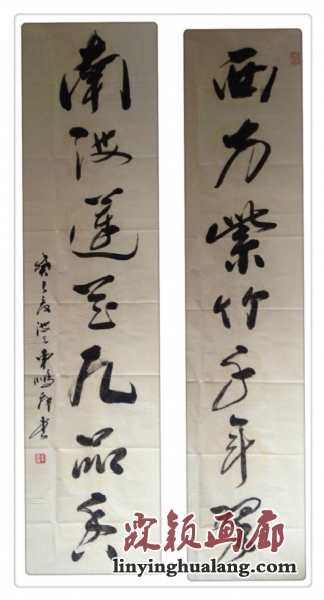 西方紫竹千年翠
南海蓮花九品香
癸巳夏
霖颖画廊
linyinghualang.com